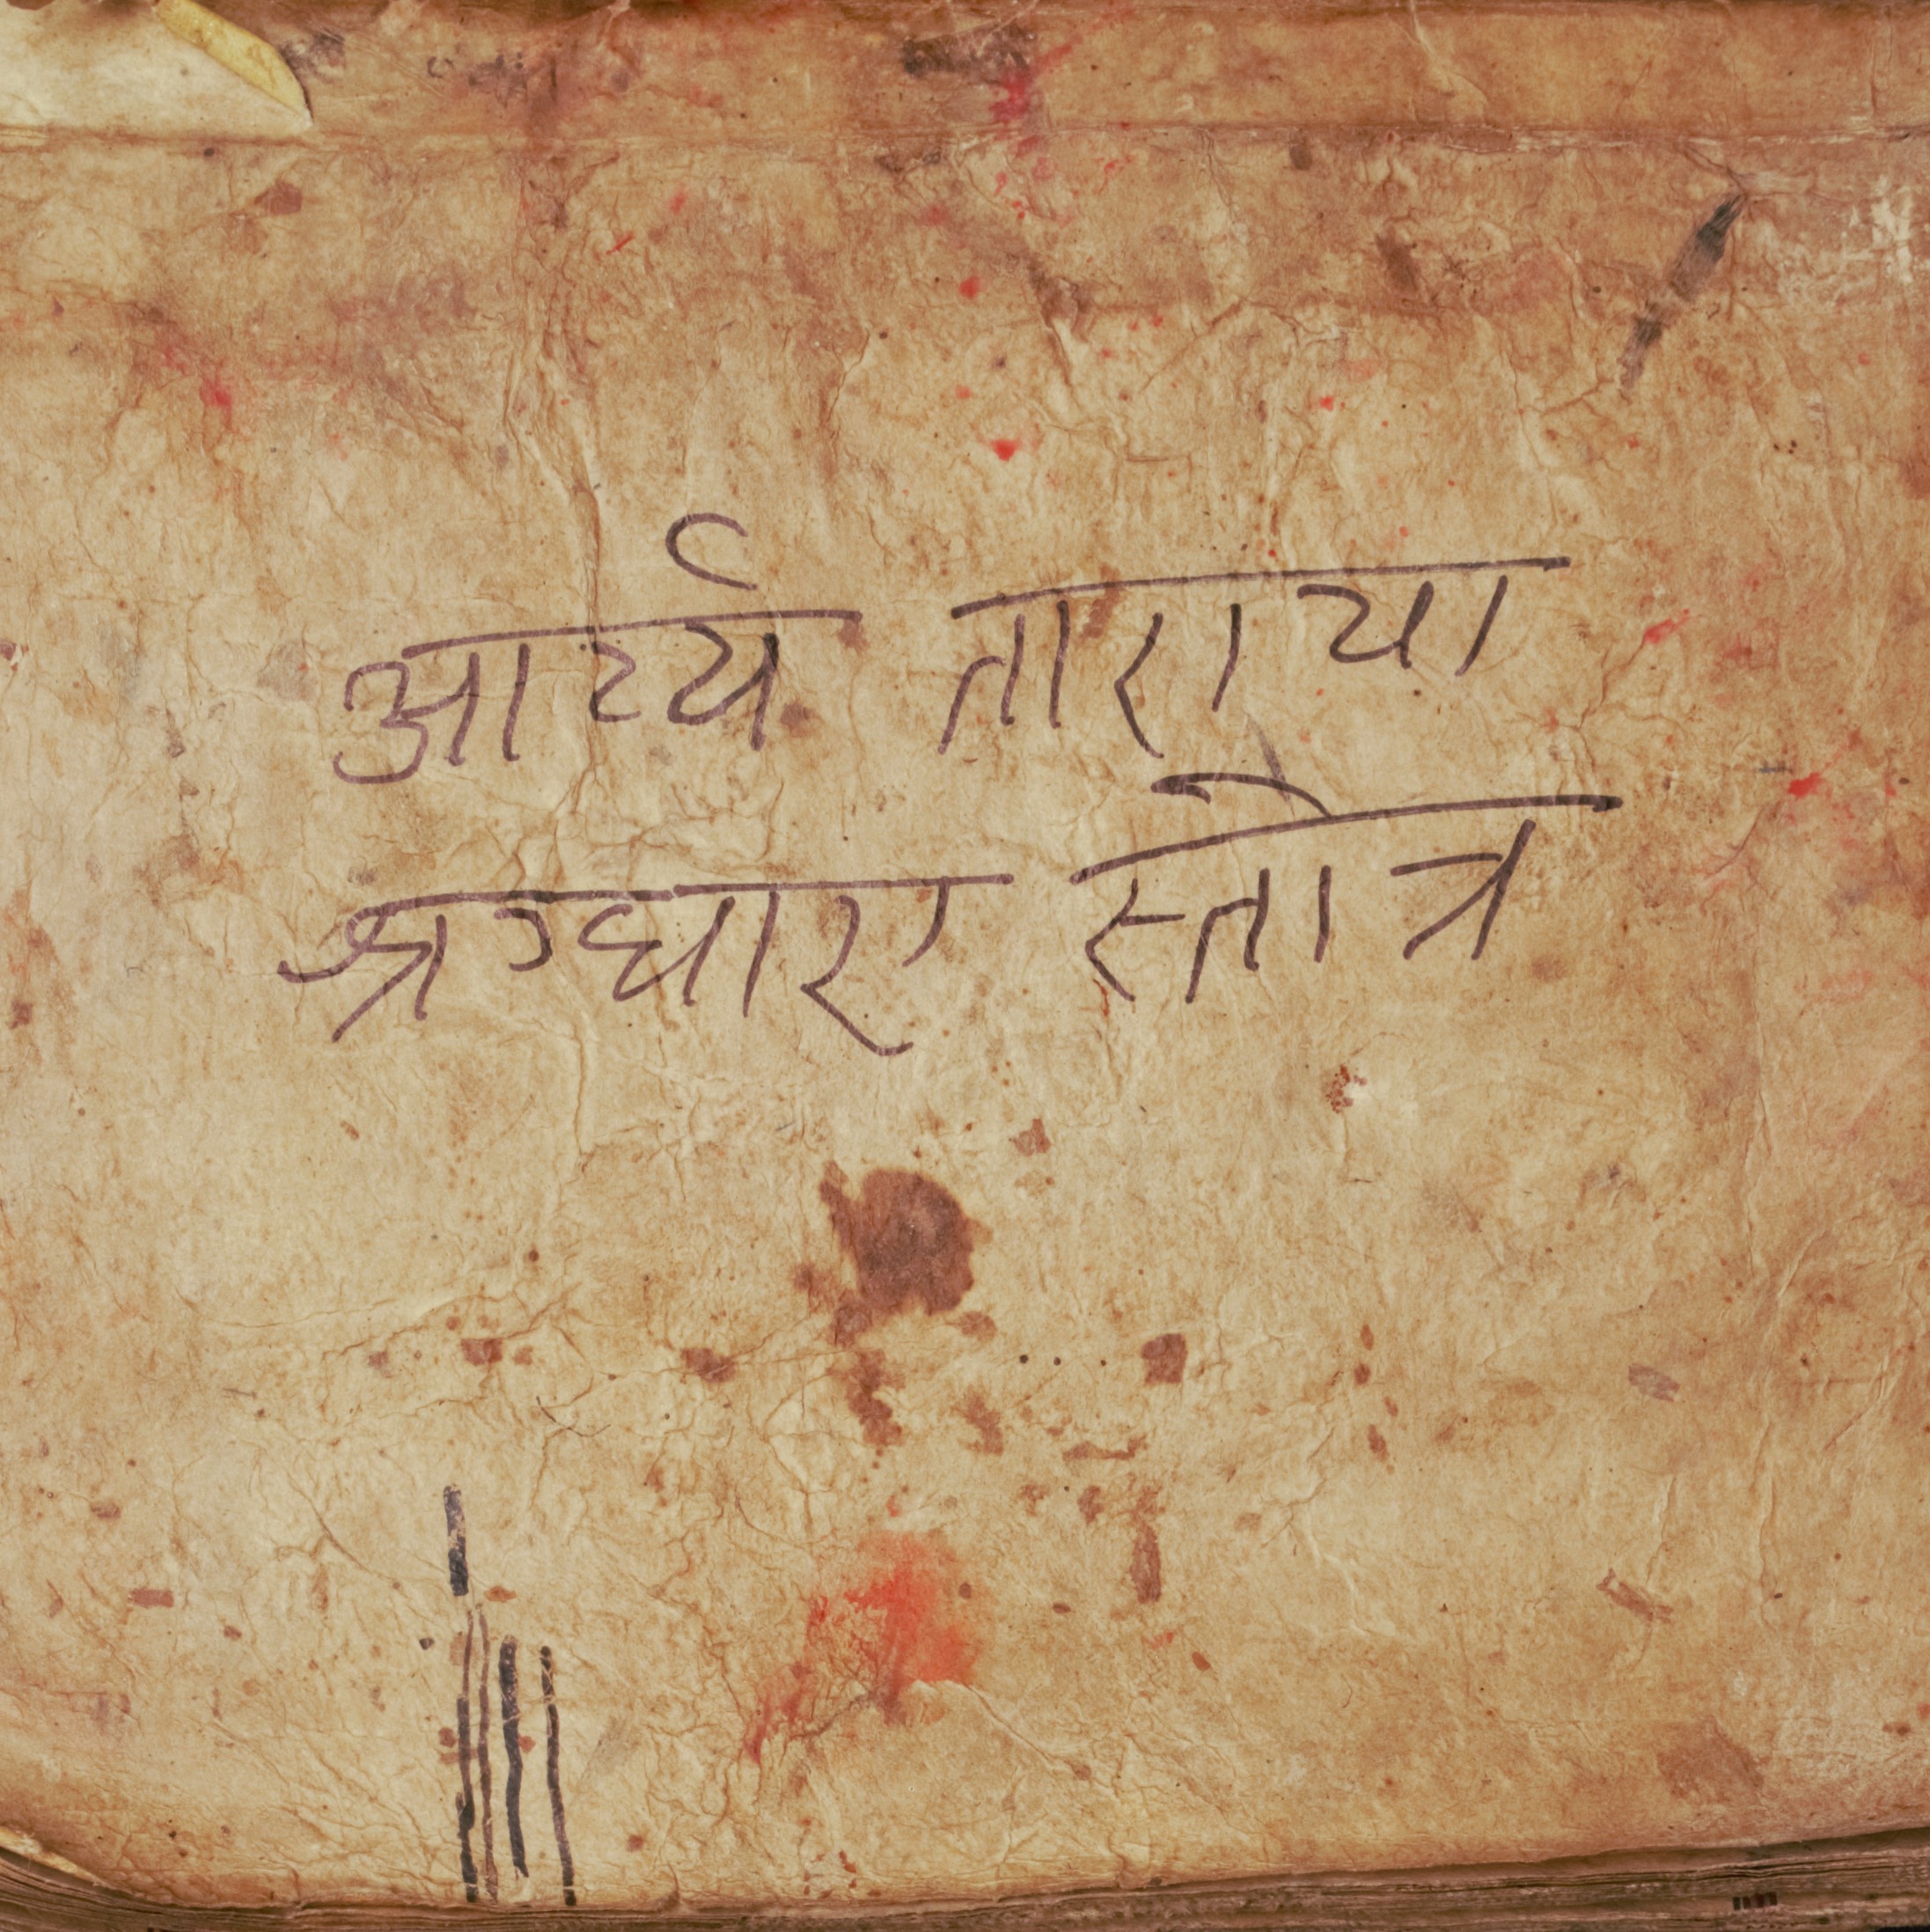 आर्य्य ताराया
श्रग्धाराए स्तोत्र